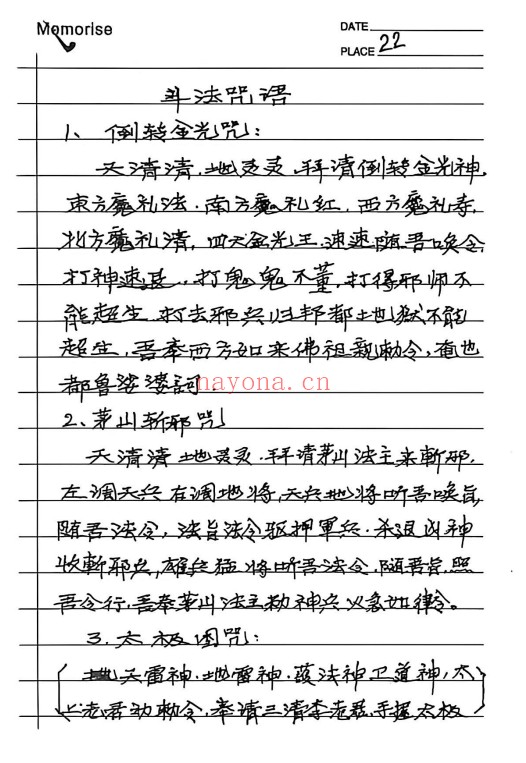 Memorise
DATE
PLACE 22
斗法咒语
1、倒转金光咒:
天清清.地灵灵.拜请倒转金光神.
东方魔礼法.南方魔礼红.西方魔礼寿.
北方魔礼清.四天金光王.速速随吾唤令,
打神速甚.打鬼鬼不董.打得邪师不
能超生.打去邪兵归邦都土地狱不能
超生,吾奉西方如来佛祖亲勅令,奄也
都鲁娑婆訶.
nayona.cn
2、茅山斩邪咒
天清清地灵灵.拜请茅山法主来斬邪.
左调天兵右调地将,天兵地将听吾唤旨,
随吾法令,法旨法令驱押軍兵.杀退凶神
收斬邪兵,雄兵猛将听吾法令.随吾旨.照
吾令行,吾奉茅山法主勅神兵火急如律令。
3.太极图咒:
天雷神.地雷神.護法神卫道神,太
上老君勅令,奉请三清李老君.手握太极